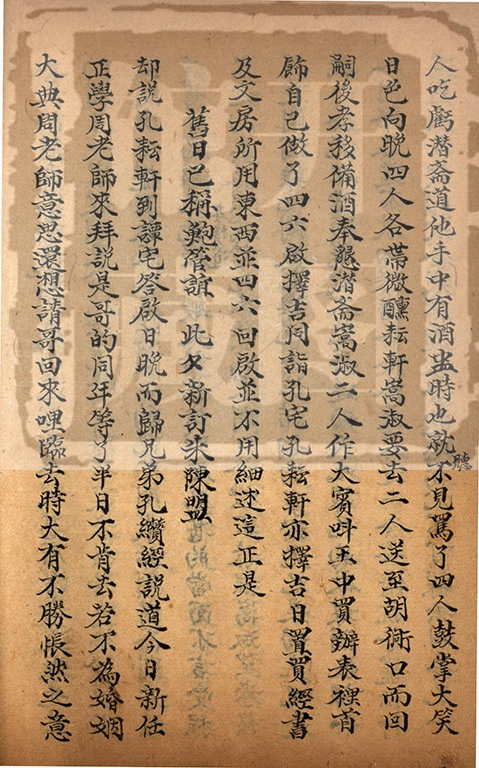 人吃虧潜斋道他手中有酒盅時也就不見罵了四人鼓掌大笑
聽
日色向晚四人各帶微醺耘軒嵩淑要去二人送至胡衕口而回
嗣後孝移備酒奉懇潜斋嵩淑二人作大賓呌王中買辦表裡首
飾自己做了四六啟擇吉同詣孔宅孔耘軒亦擇吉日置買經書
及文房所用東西並四六回啟並不用細述這正是
舊日已稱鮑管誼 此夕新訂朱陳盟
却說孔耘軒到譚宅答啟日晚而歸兄弟孔纘經說道今日新任
正學周老師來拜說是哥的同年等了半日不肯去若不為婚姻
大典周老師意思還想請哥回來哩臨去時大有不勝悵然之意